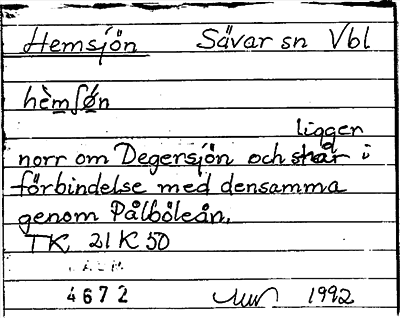 Hemsjön Sävar sn Vbl
hèmʃø̀n
ligger
norr om Degersjön och står i
förbindelse med densamma
genom Pålböleån.
TK 21 K 50
4672 1992